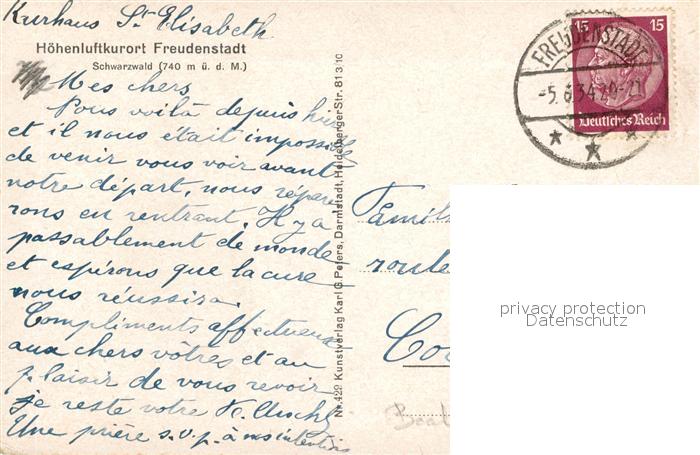 Kurhaus St Elisabeth
Höhenluftkurort Freudenstadt
Schwarzwald (740 m ü. d. M.)
Mes chers
Nous voilà depuis hier
et il nous était impossible
de venir vous voir avant
notre départ, nous répare
rons en rentrant. Il y a
passablement de monde
et espérons que la cure
nous réussira.
Compliments affectueux
aux chers vôtres et au
plaisir de vous revoir
je reste votre
Une prière s.v.p. à nos intentions
Nr. 429 Kunstverlag Karl G. Peters, Darmstadt, Heidelberger Str. 81 3 10
FREUDENSTADT
-5.6.34 20-21
15 15
Deutsches Reich
Famil
route
Co
privacy protection
Datenschutz